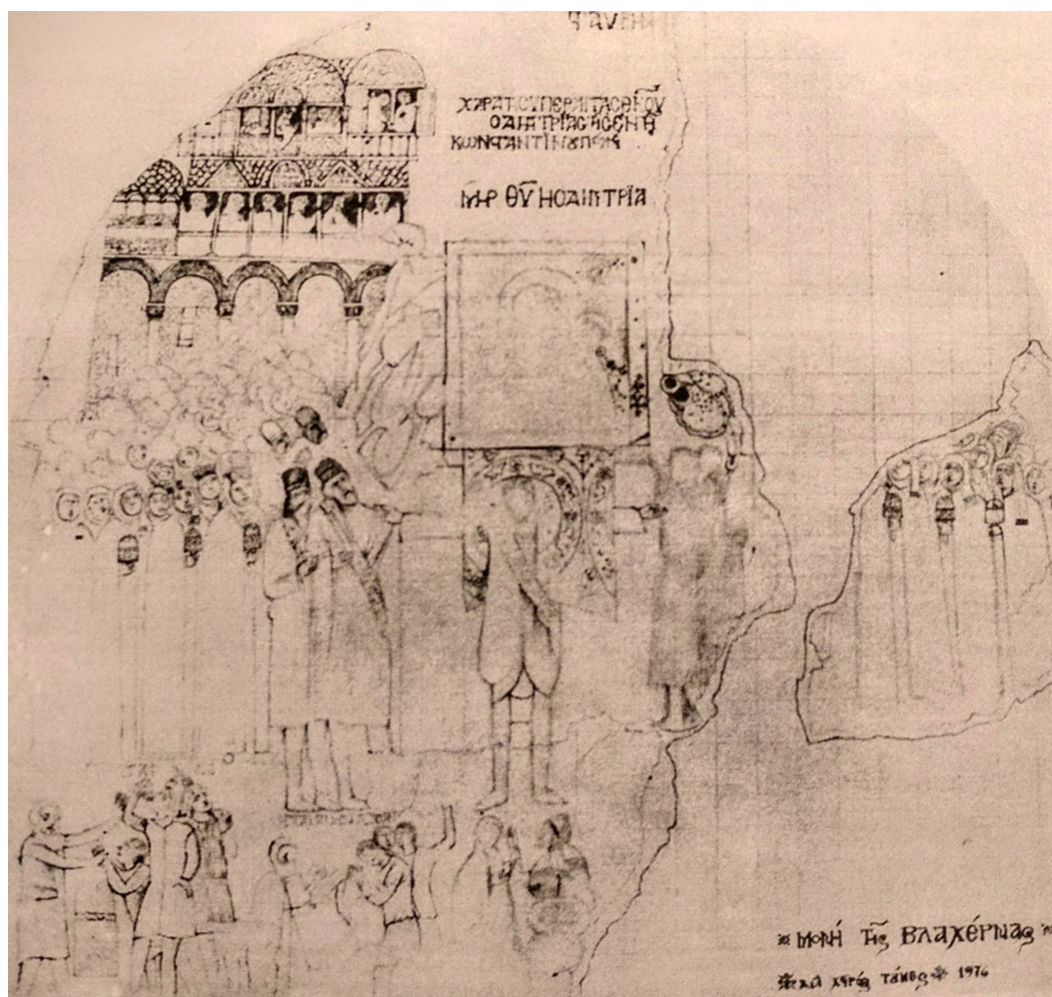 ΧΑΡΑ ΤΙC ΥΠΕΡΑΓΙΑC ΘΚΟΥ
ΟΔΙΓΙΤΡΙΑC ΤΙC ΕΝ ΤΗ
ΚΩΝCΤΑΝΤΙΝΟΥΠΟΛΙ
ΜΗΡ ΘΥ Η ΟΔΙΓΙΤΡΙΑ
ΜΟΝΗ Της ΒΛΑΧΕΡΝΑς
χειρός 1976